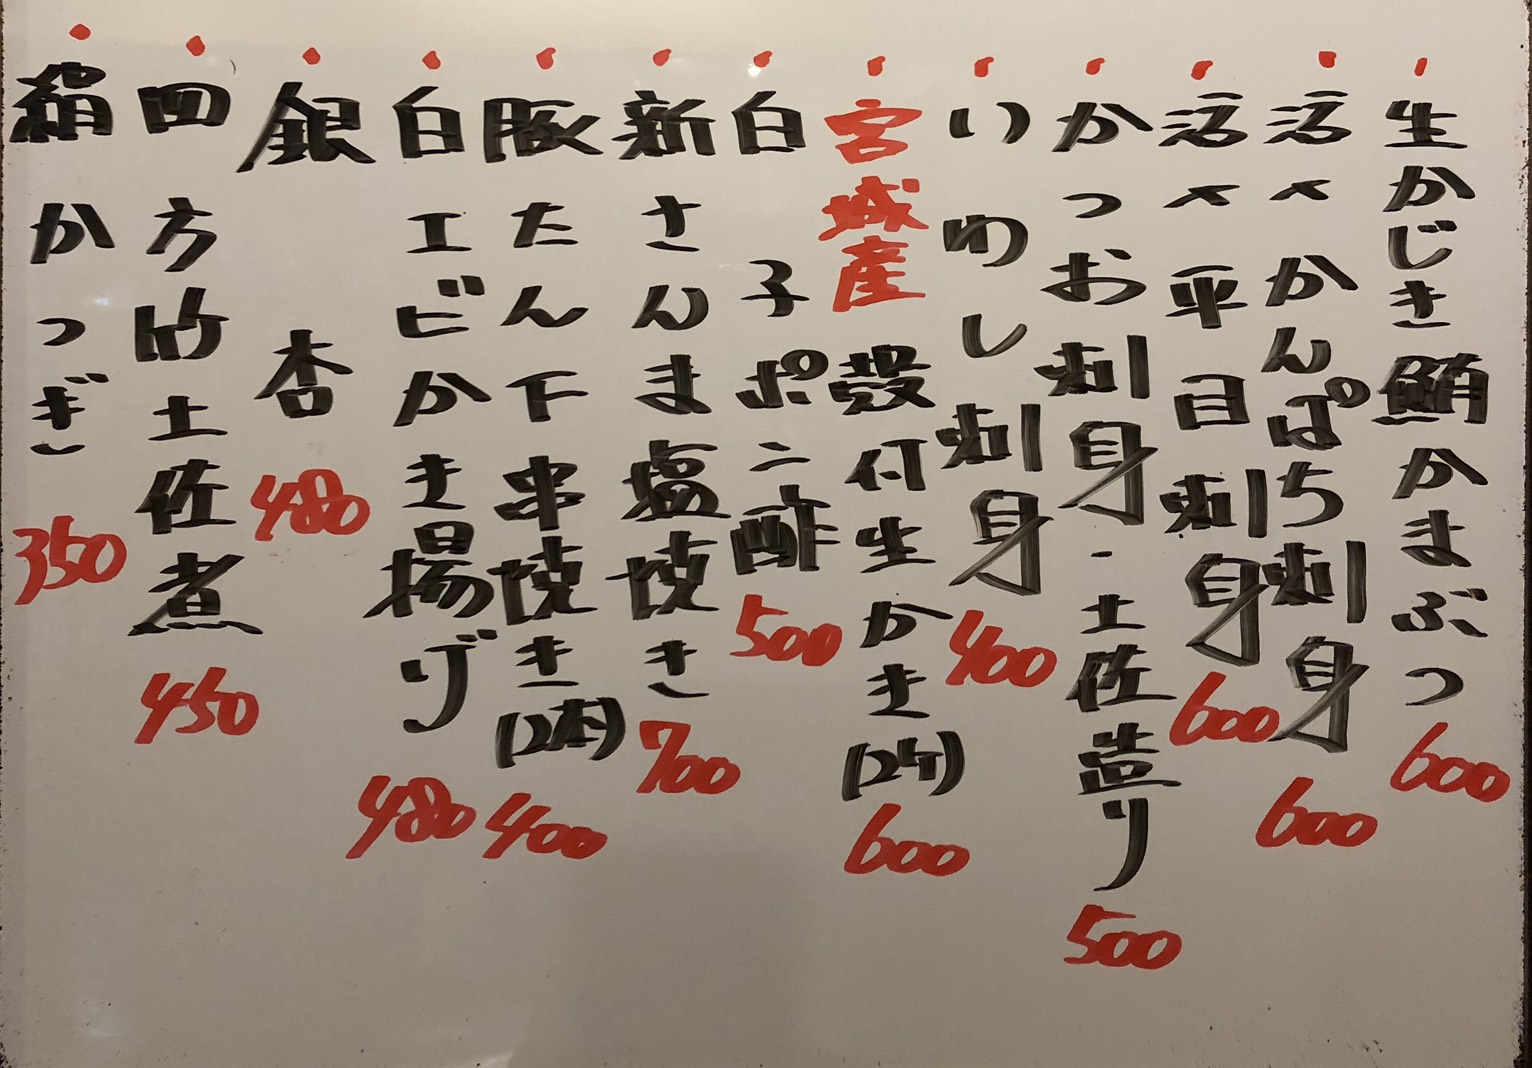 生かじき鮪かまぶつ 600
活〆かんぱち刺身 600
活〆平目刺身 600
かつお刺身・土佐造り 500
いわし刺身 400
宮城産殻付生かき(2ケ) 600
白子ポン酢 500
新さんま塩焼き 700
豚たん下串焼き(2本) 400
白エビかき揚げ 480
銀杏 480
四方竹土佐煮 450
絹かつぎ 350